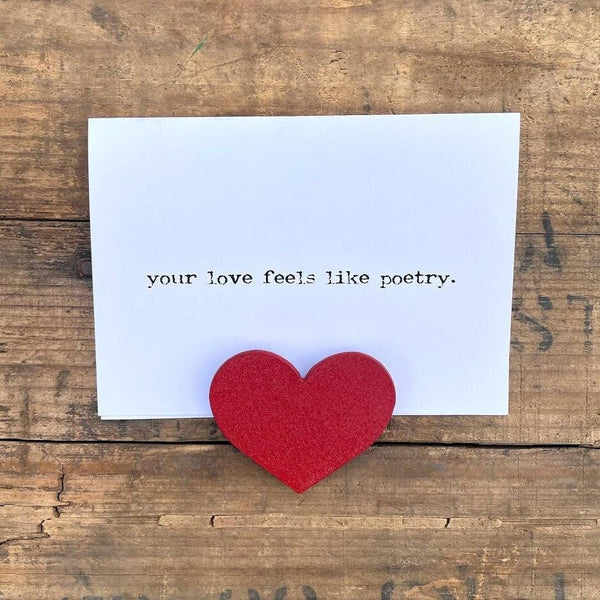 your love feels like poetry.